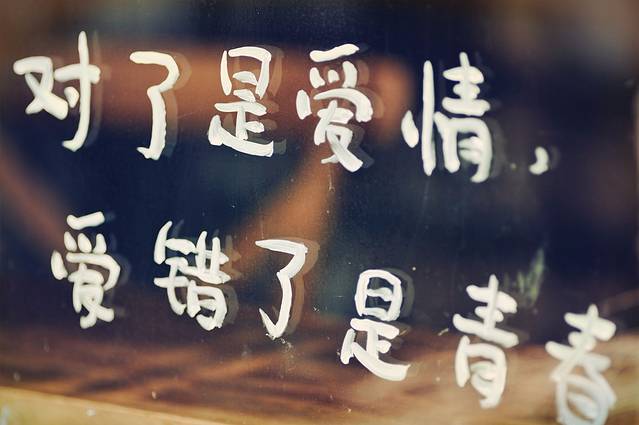 对了是爱情，
爱错了是青春